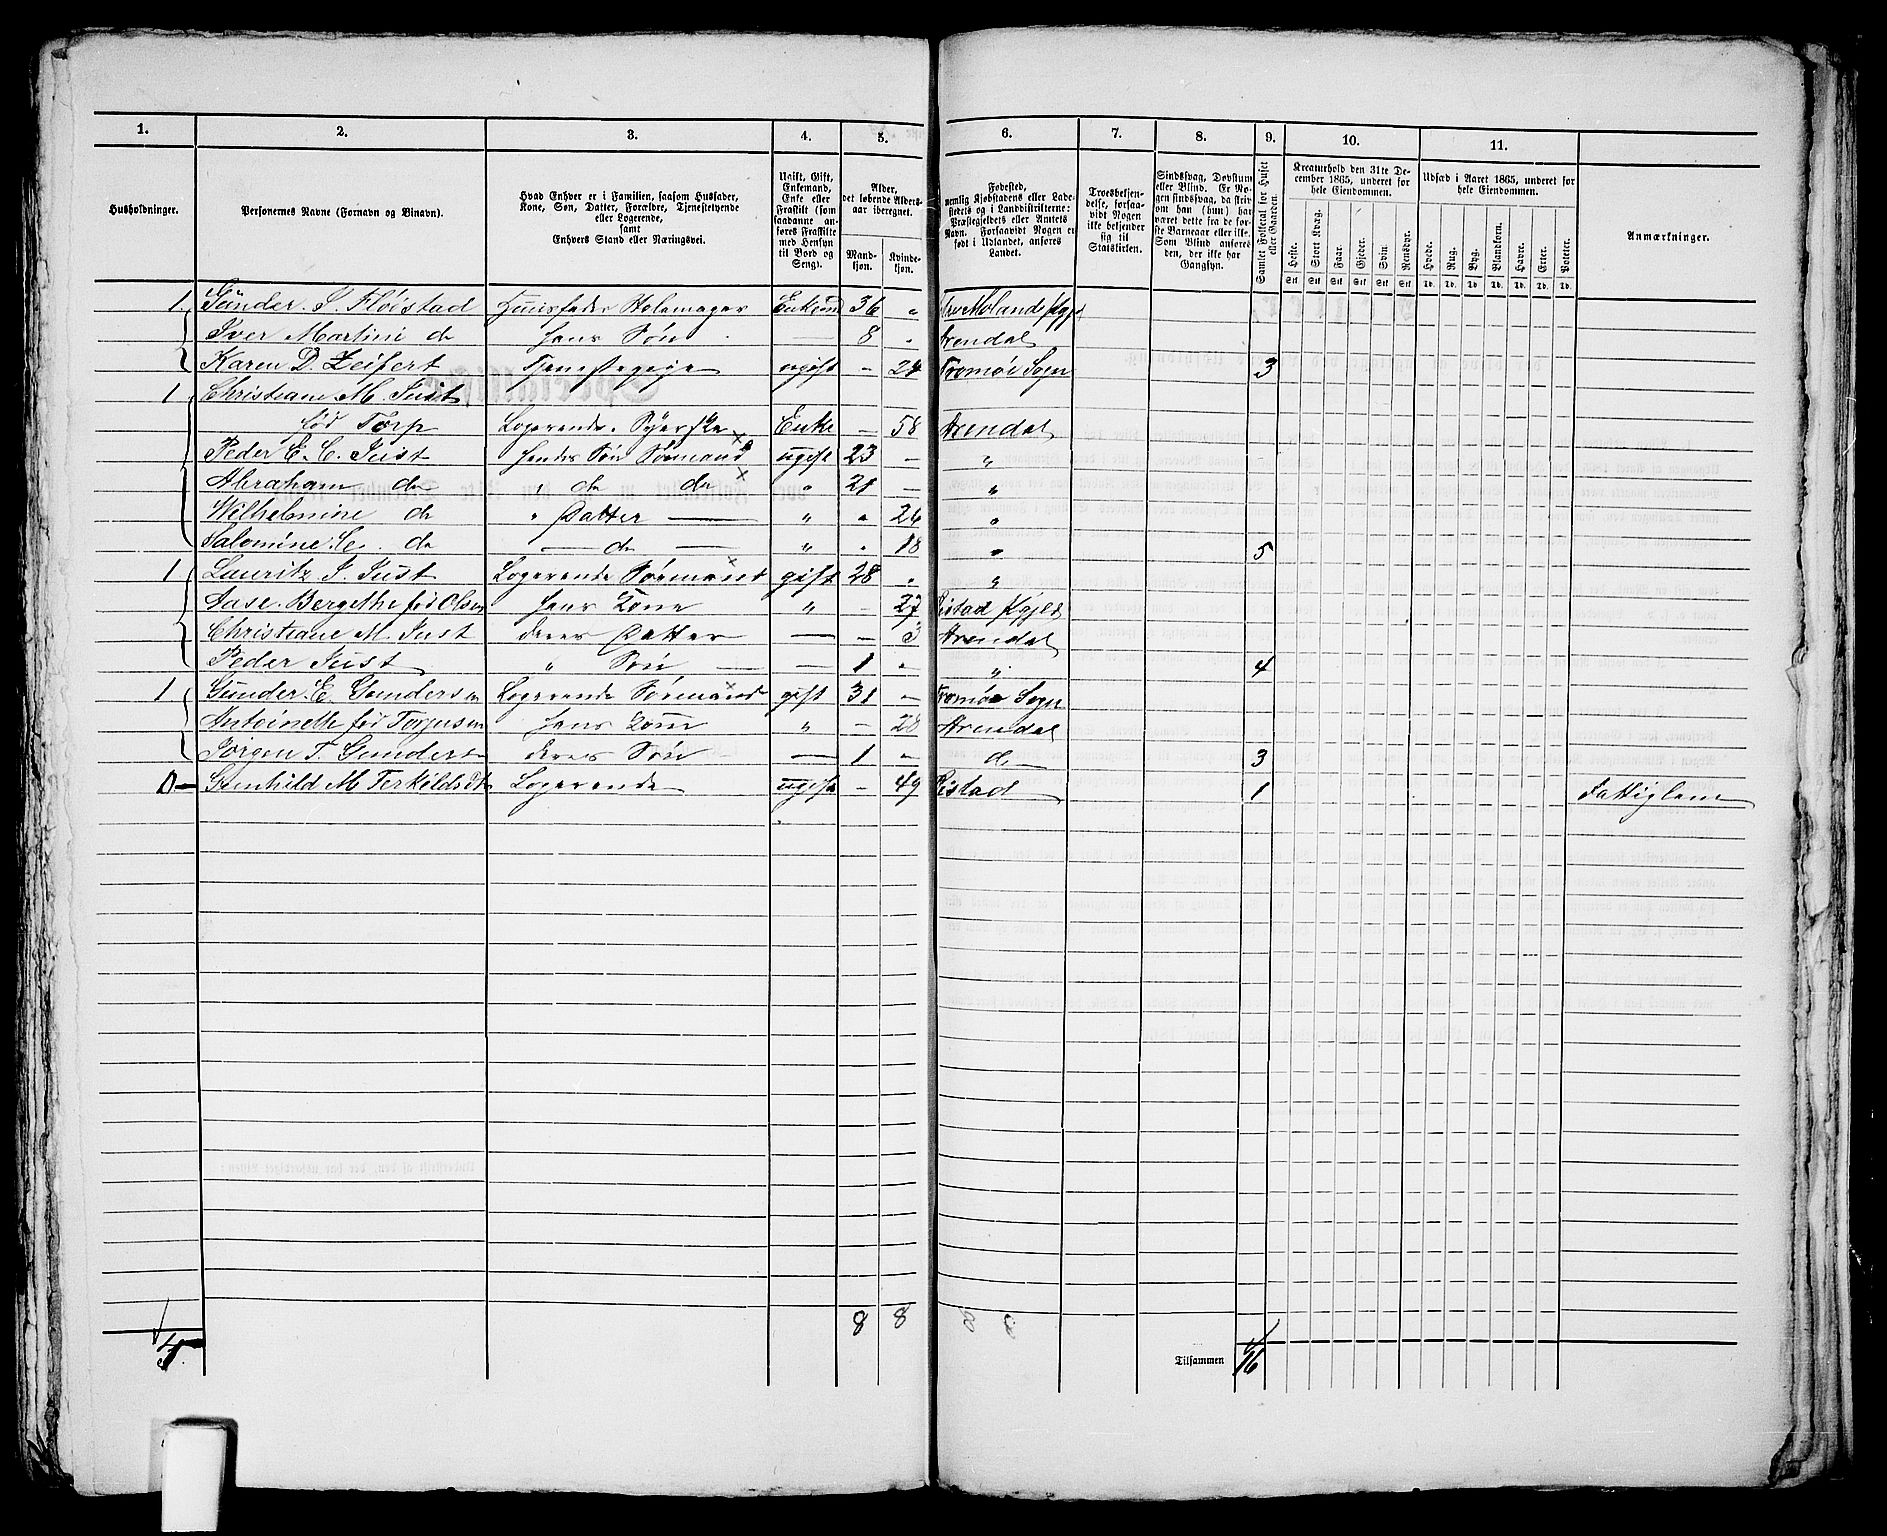 1. 2. 3. 4. 5. 6. 7. 8. 9. 10. 11.
Husholdninger.
Personernes Navne (Fornavn og Binavn).
Hvad Enhver er i Familien, saasom Husfader,
Kone, Søn, Datter, Forældre, Tjenestetyende
eller Logerende,
samt
Enhvers Stand eller Næringsvei.
Ugift, Gift,
Enkemand,
Enke eller
Fraskilt (som
saadanne an-
føres Fraskilte
med Hensyn
til Bord og
Seng).
Alder,
det løbende Alders-
aar iberegnet.
Mand-
kjøn.
Kvinde-
kjøn.
Fødested,
nemlig Kjøbstadens eller Lade-
stedets og i Landdistrikterne:
Præstegjeldets eller Amtets
Navn. Forsaavidt Nogen er
født i Udlandet, anføres
Landet.
Troesbekjen-
delse, forsaa-
vidt Nogen
ikke bekjender
sig til
Statskirken.
Sindssvag, Døvstum
eller Blind. Er No-
gen sindssvag, da skriv
om han (hun) har
været dette fra de før-
ste Barneaar eller ikke.
Som Blind anføres
den, der ikke har
Gangsyn.
Samlet Folketal for Huset
eller Gaarden.
Kreaturhold den 31te De-
cember 1865, underet for
hele Eiendommen.
Heste. Stort Kvæg. Faar. Gjeder. Svin. Rensdyr.
Stk Stk Stk Stk Stk Stk
Udsæd i Aaret 1865, underet for
hele Eiendommen.
Hvede. Rug. Byg. Blandkorn. Havre. Erter. Poteter.
Td. Td. Td. Td. Td. Td. Td.
Anmærkninger.
1. Gunder S. Fløistad Huusfader Enkemd 36 „ Molands
Iver Martini do hans Søn 8 „ Arendal
Karen D. Zeifert Tjenestepige ugift — 24 Tromø Sogn 3
1 Christiane M. Just
fød Torp Logerende Syerske Enke — 58 Arendal
Peder E. C. Just hendes Søn Sømand ugift 23 — „
Abraham do „ do do „ 21 — „
Wilhelmine do „ Datter — „ „ 26 „
Salomine C. do — do — „ „ 18 „ 5
1 Lauritz J. Just Logerende Sømand gift 28 „ „
Aase Bergethe fød Olsen hans Kone „ — 27
Christiane M. Just deres Datter — — 3 Arendal
Peder Just „ Søn — — 1 „ „ 4
1 Gunder E. Gundersen Logerende Sømand gift 31 — Tromø Sogn
Antoinette fød Torjusen hans Kone „ — 28 Arendal
Jørgen T. Gunders deres Søn — 1 — do 3
Gunhild M Terkelds Dtr Logerende ugift — 49 1 Fattiglem
8 8
Tilsammen 16